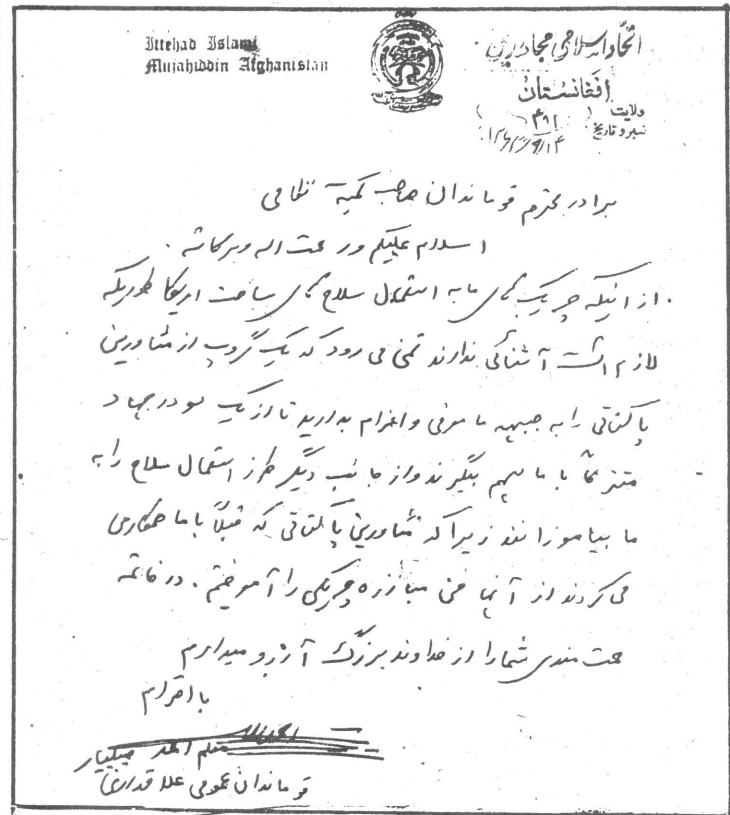 Ittehad Islami
Mujahiddin Afghanistan
اتحاد اسلامی مجاهدین
افغانستان
ولایت
نمبر و تاریخ
برادر محترم قوماندان صاحب کمیته نظامی
اسلام علیکم و رحمت اله و برکاته.
از اینکه چریک های ما به استعمال سلاح های ساخت امریکا طوریکه
لازم است آشنائی ندارند تمنی می رود که یک گروپ از مشاورین
پاکستانی را به جبهه ما معرفی و اعزام بدارید تا از یک سو در جهاد
با ما سهم بگیرند و از جانب دیگر طرز استعمال سلاح را به
ما بیاموزانند زیرا که مشاورین پاکستانی که قبلاً با ما همکاری
می کردند از آنها فن مبارزه چریکی را آموختم. در خاتمه
صحت مندی شما را از خداوند بزرگ آرزو میدارم
با احترام
قوماندان عمومی علاقداری